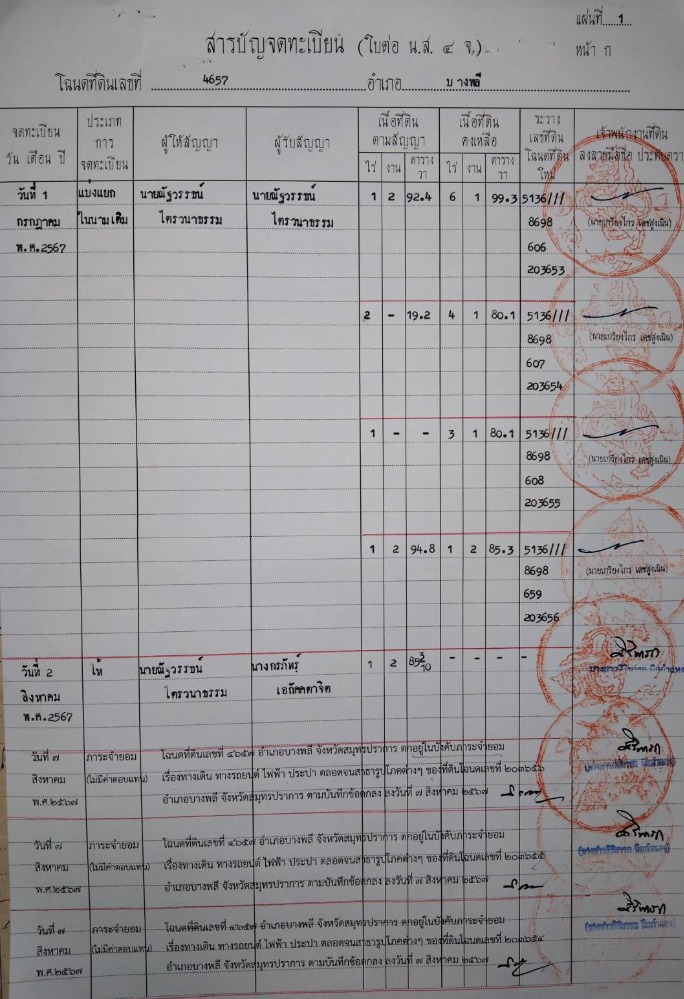 แผ่นที่ 1
สารบัญจดทะเบียน (ใบต่อ น.ส. ๔ จ.)
หน้า ก
โฉนดที่ดินเลขที่ 4657 อำเภอ บางพลี
จดทะเบียน วัน เดือน ปี
ประเภท การ จดทะเบียน
ผู้ให้สัญญา
ผู้รับสัญญา
เนื้อที่ดิน ตามสัญญา
ไร่ งาน ตาราง วา
เนื้อที่ดิน คงเหลือ
ไร่ งาน ตาราง วา
ระวาง เลขที่ดิน โฉนดที่ดิน ใหม่
เจ้าพนักงานที่ดิน ลงลายมือชื่อ ประทับตรา
วันที่ 1 แบ่งแยก นายณัฐวรรธน์ นายณัฐวรรธน์ 1 2 92.4 6 1 99.3 5136///
กรกฎาคม ในนามเดิม ไตรวนาธรรม ไตรวนาธรรม 8698 (นายเกรียงไกร เดชสูงเนิน)
พ.ศ.2567 606
203653
2 - 19.2 4 1 80.1 5136///
8698 (นายเกรียงไกร เดชสูงเนิน)
607
203654
1 - - 3 1 80.1 5136///
8698 (นายเกรียงไกร เดชสูงเนิน)
608
203655
1 2 94.8 1 2 85.3 5136///
8698 (นายเกรียงไกร เดชสูงเนิน)
659
203656
วันที่ 2 ให้ นายณัฐวรรธน์ นางกรภัทร์ 1 2 85 3/10 - - - -
สิงหาคม ไตรวนาธรรม เอกัคคตาจิต
พ.ศ.2567
วันที่ ๗ ภาระจำยอม โฉนดที่ดินเลขที่ ๔๖๕๗ อำเภอบางพลี จังหวัดสมุทรปราการ ตกอยู่ในบังคับภาระจำยอม
สิงหาคม (ไม่มีค่าตอบแทน) เรื่องทางเดิน ทางรถยนต์ ไฟฟ้า ประปา ตลอดจนสาธารูปโภคต่างๆ ของที่ดินโฉนดเลขที่ ๒๐๓๖๕๖
พ.ศ.๒๕๖๗ อำเภอบางพลี จังหวัดสมุทรปราการ ตามบันทึกข้อตกลง ลงวันที่ ๗ สิงหาคม ๒๕๖๗
วันที่ ๗ ภาระจำยอม โฉนดที่ดินเลขที่ ๔๖๕๗ อำเภอบางพลี จังหวัดสมุทรปราการ ตกอยู่ในบังคับภาระจำยอม
สิงหาคม (ไม่มีค่าตอบแทน) เรื่องทางเดิน ทางรถยนต์ ไฟฟ้า ประปา ตลอดจนสาธารูปโภคต่างๆ ของที่ดินโฉนดเลขที่ ๒๐๓๖๕๕
พ.ศ.๒๕๖๗ อำเภอบางพลี จังหวัดสมุทรปราการ ตามบันทึกข้อตกลง ลงวันที่ ๗ สิงหาคม ๒๕๖๗
วันที่ ๗ ภาระจำยอม โฉนดที่ดินเลขที่ ๔๖๕๗ อำเภอบางพลี จังหวัดสมุทรปราการ ตกอยู่ในบังคับภาระจำยอม
สิงหาคม (ไม่มีค่าตอบแทน) เรื่องทางเดิน ทางรถยนต์ ไฟฟ้า ประปา ตลอดจนสาธารูปโภคต่างๆ ของที่ดินโฉนดเลขที่ ๒๐๓๖๕๔
พ.ศ.๒๕๖๗ อำเภอบางพลี จังหวัดสมุทรปราการ ตามบันทึกข้อตกลง ลงวันที่ ๗ สิงหาคม ๒๕๖๗